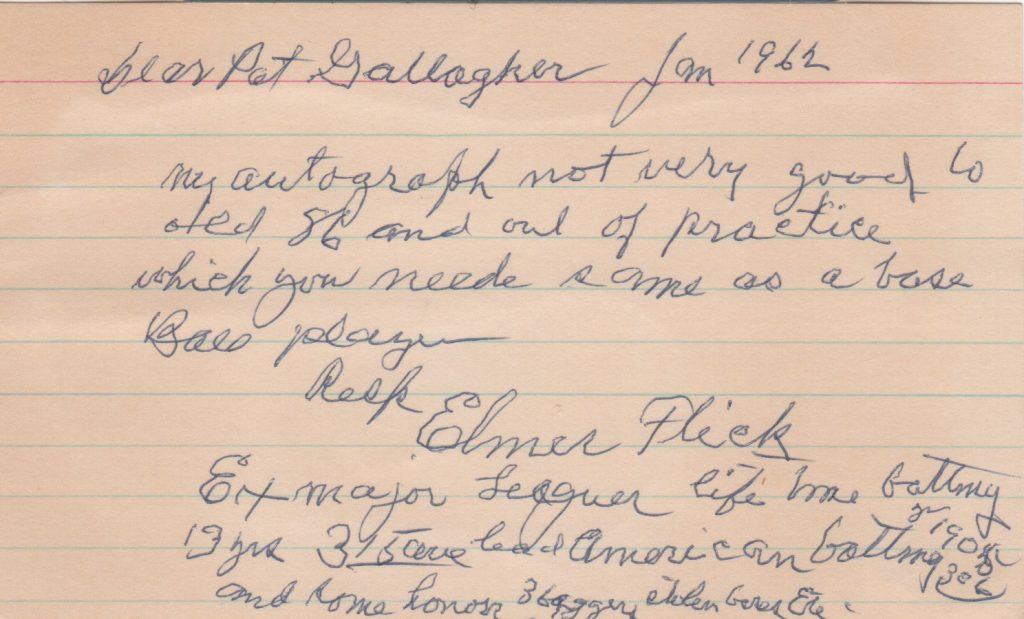 Dear Pat Gallagher Jan 1962
my autograph not very good to
old 86 and out of practice
which you neede same as a base
Ball player
Resp
Elmer Flick
Ex major Leaguer life time batting
13 yrs 315 ave lead American batting in 1905
306
and some honors 3 baggers, stolen bases Etc.